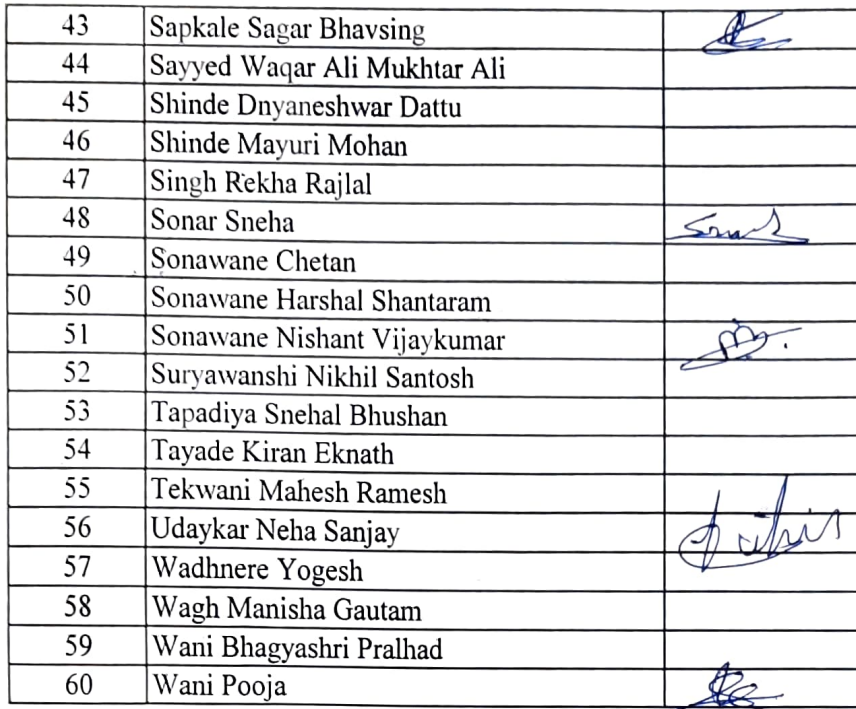 43 Sapkale Sagar Bhavsing
44 Sayyed Waqar Ali Mukhtar Ali
45 Shinde Dnyaneshwar Dattu
46 Shinde Mayuri Mohan
47 Singh Rekha Rajlal
48 Sonar Sneha
49 Sonawane Chetan
50 Sonawane Harshal Shantaram
51 Sonawane Nishant Vijaykumar
52 Suryawanshi Nikhil Santosh
53 Tapadiya Snehal Bhushan
54 Tayade Kiran Eknath
55 Tekwani Mahesh Ramesh
56 Udaykar Neha Sanjay
57 Wadhnere Yogesh
58 Wagh Manisha Gautam
59 Wani Bhagyashri Pralhad
60 Wani Pooja